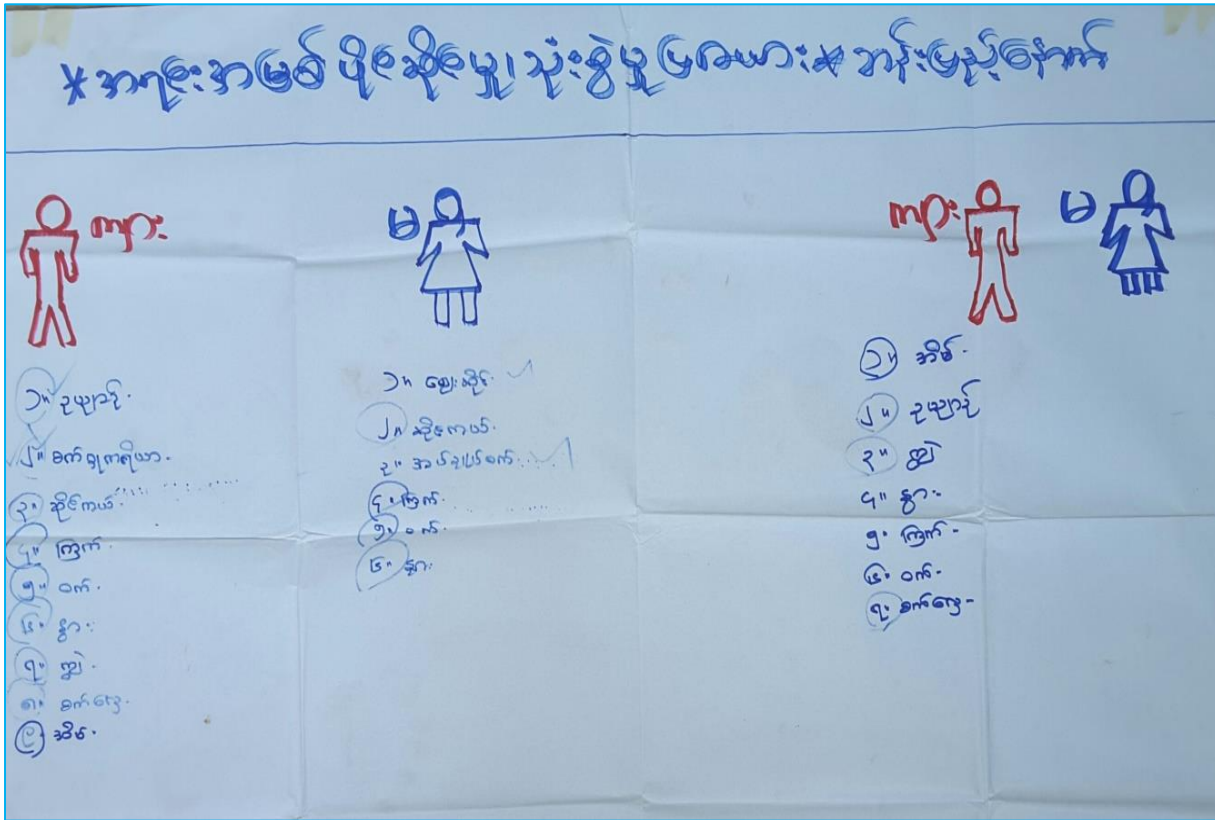 *အရင်းအမြစ် ပိုင်ဆိုင်မှု၊ သုံးစွဲမှု ပြဇယား* ဘန်းမြည့်နောက်
ကျား
၁။ ဥယျာဉ်.
၂။ စက်ချုကရိယာ.
၃။ ဆိုင်ကယ်.
၄။ ကြက်.
၅။ ဝက်.
၆။ နွား.
၇။ ကျွဲ.
၈။ စက်လှေ.
၉။ အိမ်.
မ
၁။ ဈေးဆိုင်.
၂။ ဆိုင်ကယ်.
၃။ အပ်ချုပ်စက်.
၄။ ကြက်.
၅။ ဝက်.
၆။ နွား.
ကျား မ
၁။ အိမ်.
၂။ ဥယျာဉ်
၃။ ကျွဲ
၄။ နွား.
၅။ ကြက်.
၆။ ဝက်.
၇။ စက်လှေ.